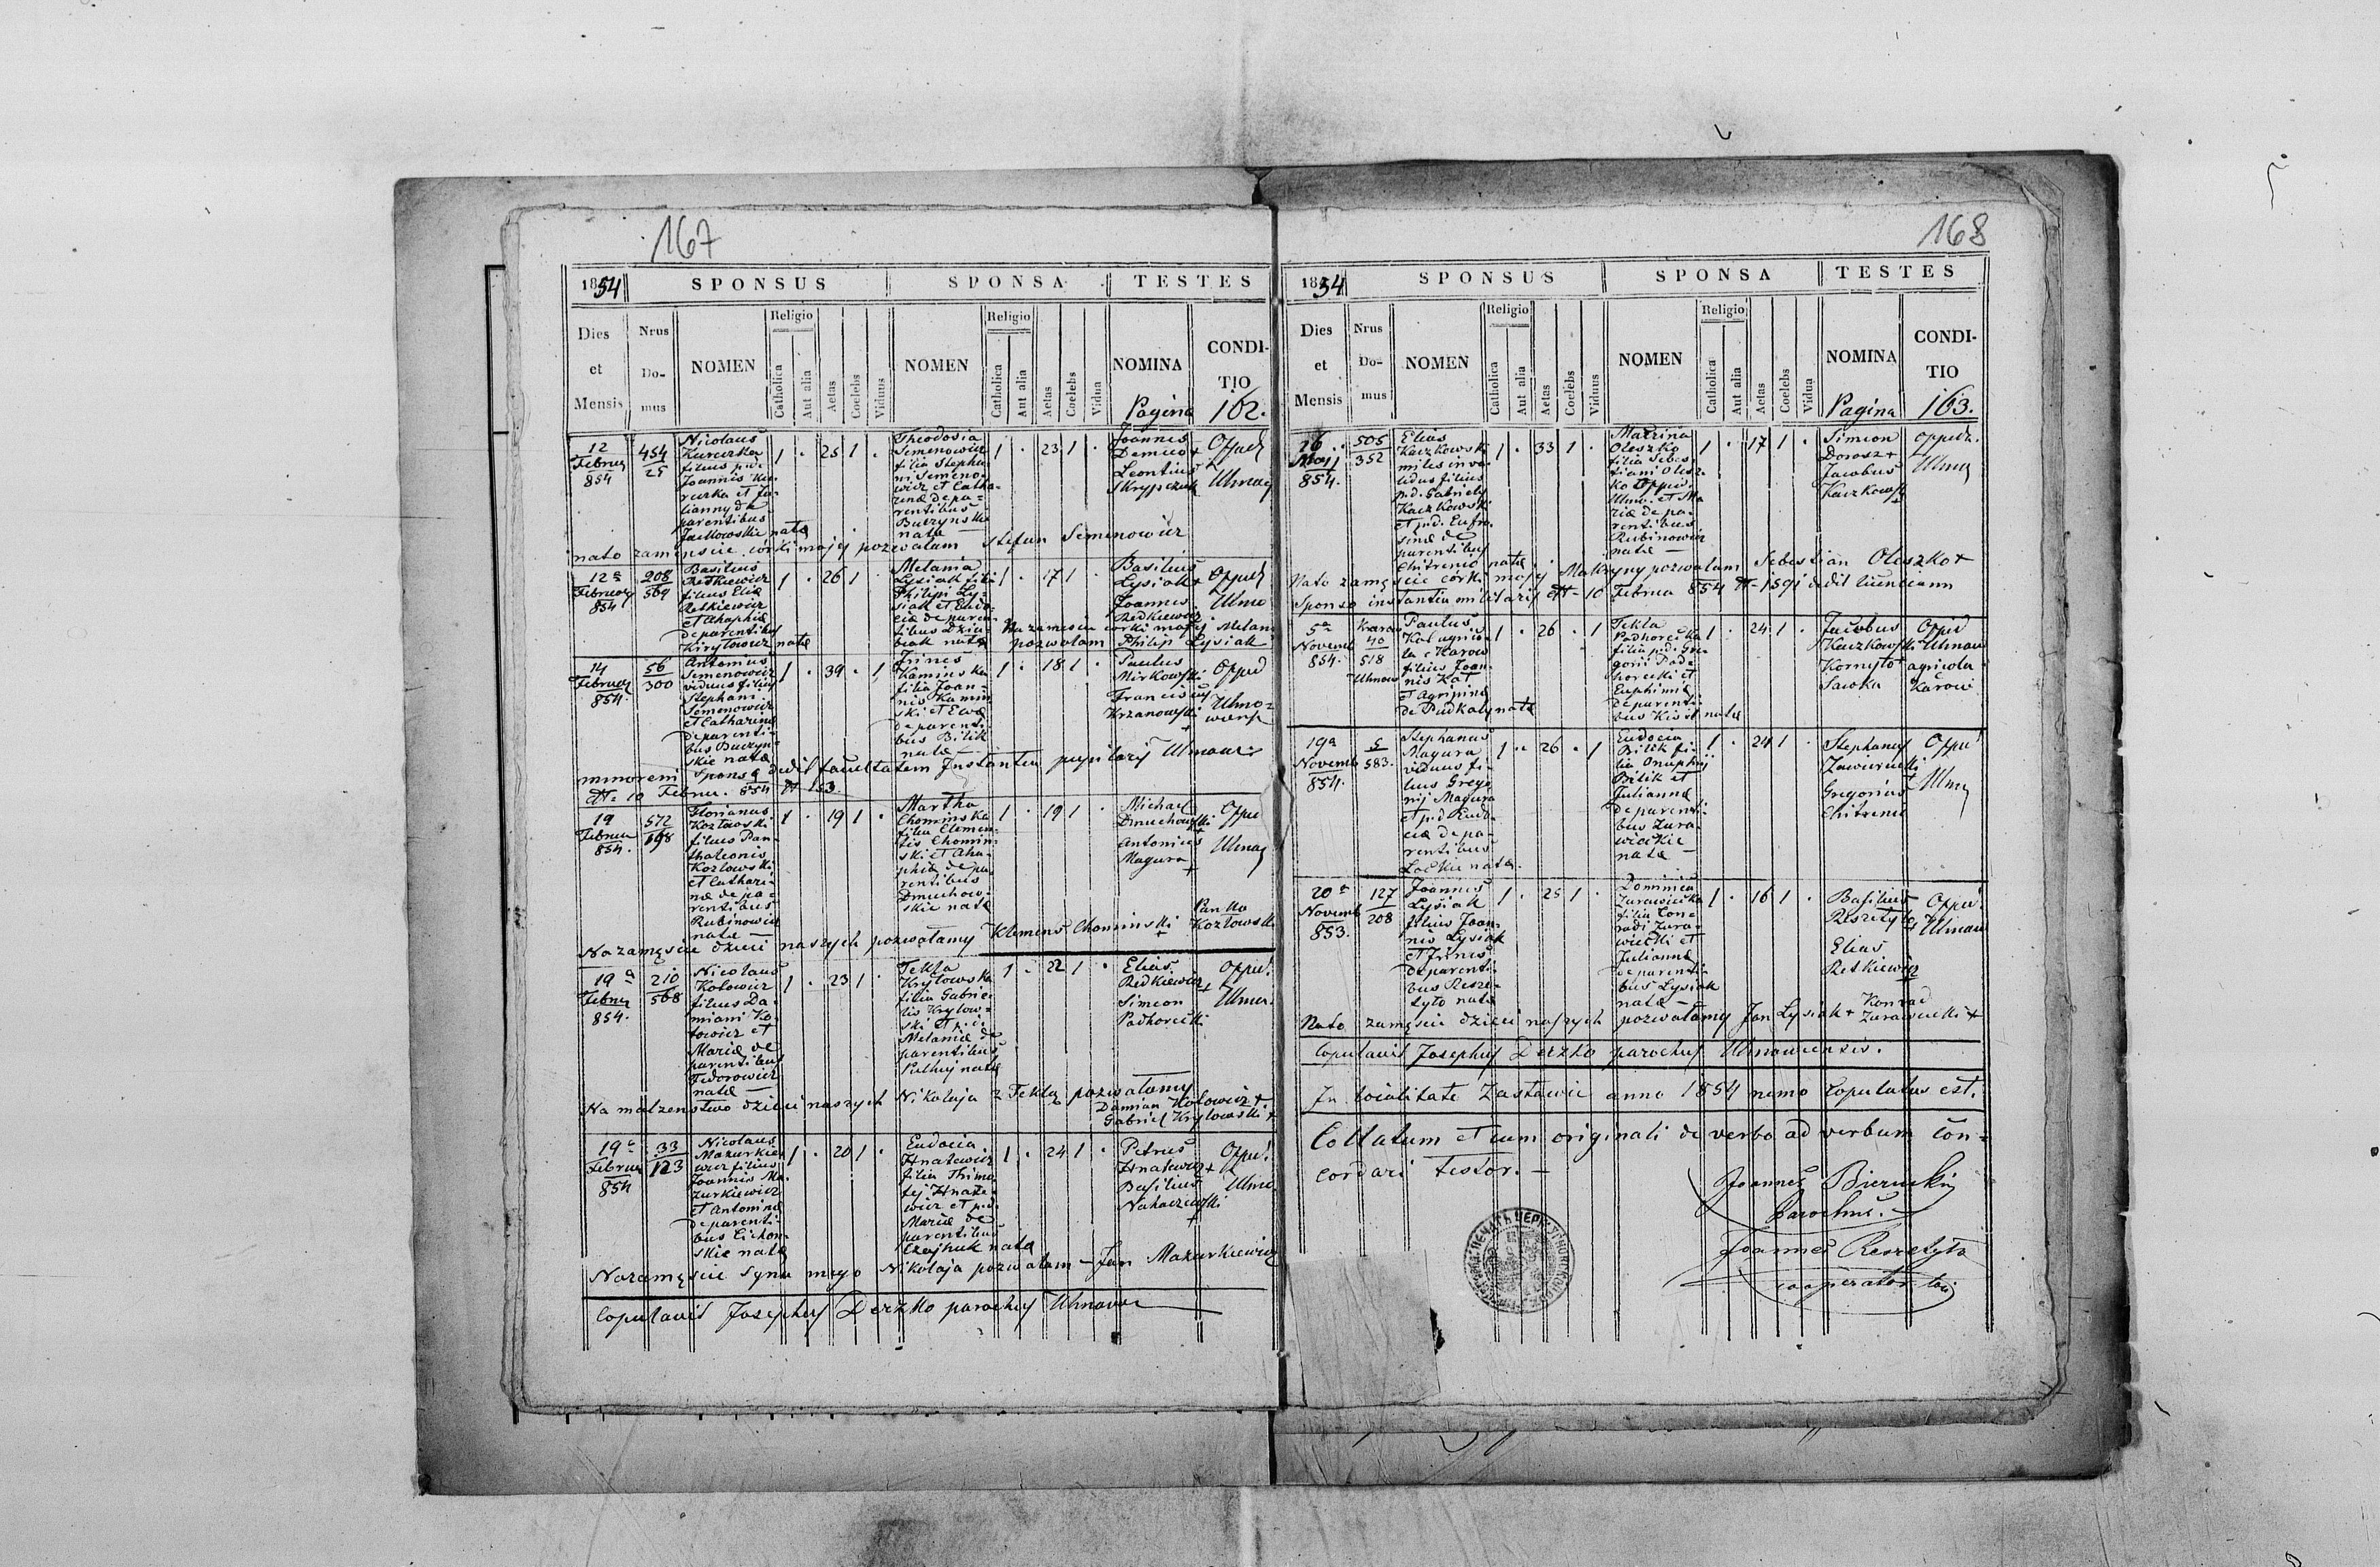 167
1854
SPONSUS
SPONSA
TESTES
Dies et Mensis
Nrus Domus
NOMEN
Religio
Catholica
Aut alia
Aetas
Coelebs
Viduus
NOMEN
Religio
Catholica
Aut alia
Aetas
Coelebs
Vidua
NOMINA
CONDITIO
Pagina 162.
12
Februa
854
454
25
Nicolaus
Kureczka
filius p.d.
Joannis Ku-
reczka et Ju-
lianny de
parentibus
nata
1 . 25 1 .
Theodosia
Semenowicz
filia Stepha-
ni Semeno-
wicz et Catha-
rina de pa-
rentibus
Buczynskie
nata
1 . 23 1 .
Joannes
Leontius
Skrypczuk
Oppid
nato zamęscie córki mojej pozwalam Stefan Semenowicz
12a
Februa
854
208
569
Basilius
Redkiewicz
filius Eliæ
Retkiewicz
et Ahaphiæ
de parentibus
Kirylowicz nata
1 . 26 1 .
Melania
Lysiak filia
Philipi Ly-
siak et Eudo-
ciæ de paren-
tibus Dziu-
biak nata
1 . 17 1 .
Basilius
Lysiak +
Joannes
Redkiewicz
Oppid
Na zamescie córki mojej Melani
pozwalam Philip Lysiak
14
Februa
854.
56
300
Antonius
Semenowicz
viduus filius
Stephani
Semenowicz
et Catharina
de parenti-
bus Buczyn-
skie nata
1 . 39 . 1
Irines
Kaminska
filia Joan-
nis Kamin-
ski et Ewæ
de parenti-
bus Bilik
nata
1 . 18 1 .
Paulus
Mirkowski
Franciscus
Krzanowski
Oppid
minoreni Sponsæ dedit facultatem Instantia pupilaris
10 Februa. 854 153.
19
Februa
854.
572
198
Florianus
Kozlowski
filius Pan-
thaleonis
Kozlowski
et Cathari-
na de pa-
rentibus
Rubinowicz
nata
1 . 19 1 .
Martha
Chominska
filia Clemen-
tis Chomin-
ski et Aha-
phiæ de pa-
rentibus
Dmuchow-
skie nata
1 . 19 1 .
Michael
Dmuchowski
Antonius
Magura
+
Na zamęscie dzieci naszych pozwalamy Klemens Chominski Panko Kozlowski
19a
Februa
854.
210
568
Nicolaus
Kotowicz
filius Da-
miani Ko-
towicz et
Mariæ de
parentibus
Fedorowicz
nata
1 . 23 1 .
Tekla
Krylowska
filia Gabrie-
lis Krylow-
ski et p.d.
Melaniæ de
parentibus
nata
1 . 22 1 .
Elias
Redkiewicz
Simeon
Padhorecki
Oppid
Na malzenstwo dzieci naszych Nikolaja z Teklą pozwalamy
Damian Kotowicz +
Gabriel Krylowski +
19a
Februa
854
33
123
Nicolaus
Mazurkie-
wicz filius
Joannis Ma-
zurkiewicz
et Antonina
de parenti-
bus Cichon-
skie nata
1 . 20 1 .
Eudocia
Hnatewicz
filia Thimo-
tej Hnate-
wicz et p.d.
Mariæ de
parentibus
nata
1 . 24 1 .
Petrus
Hnatewicz +
Basilius
Nahaczewski
+
Oppid
Nazamęscie syna mego Nikolaja pozwalam - Jan Mazurkiewicz
Copulavit Josephus Derzko parochus
168
1854
SPONSUS
SPONSA
TESTES
Dies et Mensis
Nrus Domus
NOMEN
Religio
Catholica
Aut alia
Aetas
Coelebs
Viduus
NOMEN
Religio
Catholica
Aut alia
Aetas
Coelebs
Vidua
NOMINA
CONDITIO
Pagina 163.
16
Maij
854.
505
352
Elias
Kaczkowski
miles inva-
lidus filius
p.d. Gabrielis
Kaczkowski
et p.d. Eufro-
sinæ de
parentibus
Chitrenio nata
1 . 33 1 .
Matrina
Oleszko
filia Sebes-
tiani Olesz-
ko
et Ma-
riæ de pa-
rentibus
Rubinowicz
nata
1 . 17 1 .
Simeon
Dorosz +
Jacobus
Kaczkowski
oppid.
Nato zamęscie córki mojej Matryny pozwalam Sebestian Oleszko +
Sponso instantia militaris 10 Februa 854 dedit licentiam
5a
Novemb
854.
Karow
40
518
Uhnow
Paulus
Kot agrico-
la e Karow
filius Joan-
nis Kot
et Agripina
de Pudkaly nata
1 . 26 . 1
Tekla
Padhorecka
filia p.d. Gre-
gorii Pad-
horecki et
Euphimiæ
de parenti-
bus nata
1 . 24 1 .
Jacobus
Kaczkowski
Kornyło
Sawka
Oppid
Uhnow
agricola
Karow
19a
Novemb
854.
5
583.
Stephanus
Magura
viduus fi-
lius Grego-
rij Magura
et p.d. Eudo-
ciæ de pa-
rentibus
Lockie nata.
1 . 26 . 1
Eudocia
Bilik fi-
lia Onuphrij
Bilik et
Julianna
de parenti-
bus Zura-
wieckie
nata
1 . 24 1 .
Stephanus
Gregorius
Chitrenio
Oppid
20a
Novemb
853.
127
208
Joannes
Lysiak
filius Joan-
nis Lysiak
et Irines
de parenti-
bus Resze-
tylo nata
1 . 25 1 .
Dominica
Zurawiecka
filia Con-
radi Zura-
wiecki et
Julianna
de parenti-
bus Lysiak
nata
1 . 16 1 .
Basilius
Reszetylo
Elias
Retkiewicz
+
Oppid
Nato zamęscie dzieci naszych pozwalamy Jan Lysiak + Konrad Zurawiecki +
Copulavit Josephus Derzko parochus Uhnoviensis.
In localitate Zastawie anno 1854 nemo Copulatus est.
Collatum et cum originali de verbo ad verbum con-
cordari testor. -
Joannes
Parochus.
Joannes Reszetylo
cooperator